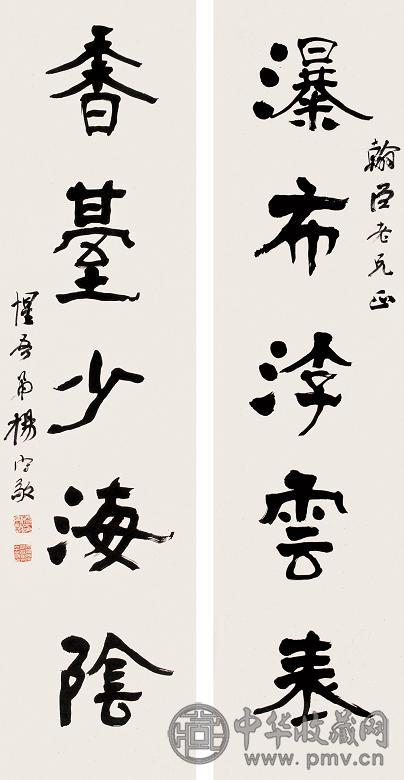 翰臣老兄正
瀑布浮雲表
香臺少海陰
惺吾弟楊守敬
中华收藏网
www.pmv.cn